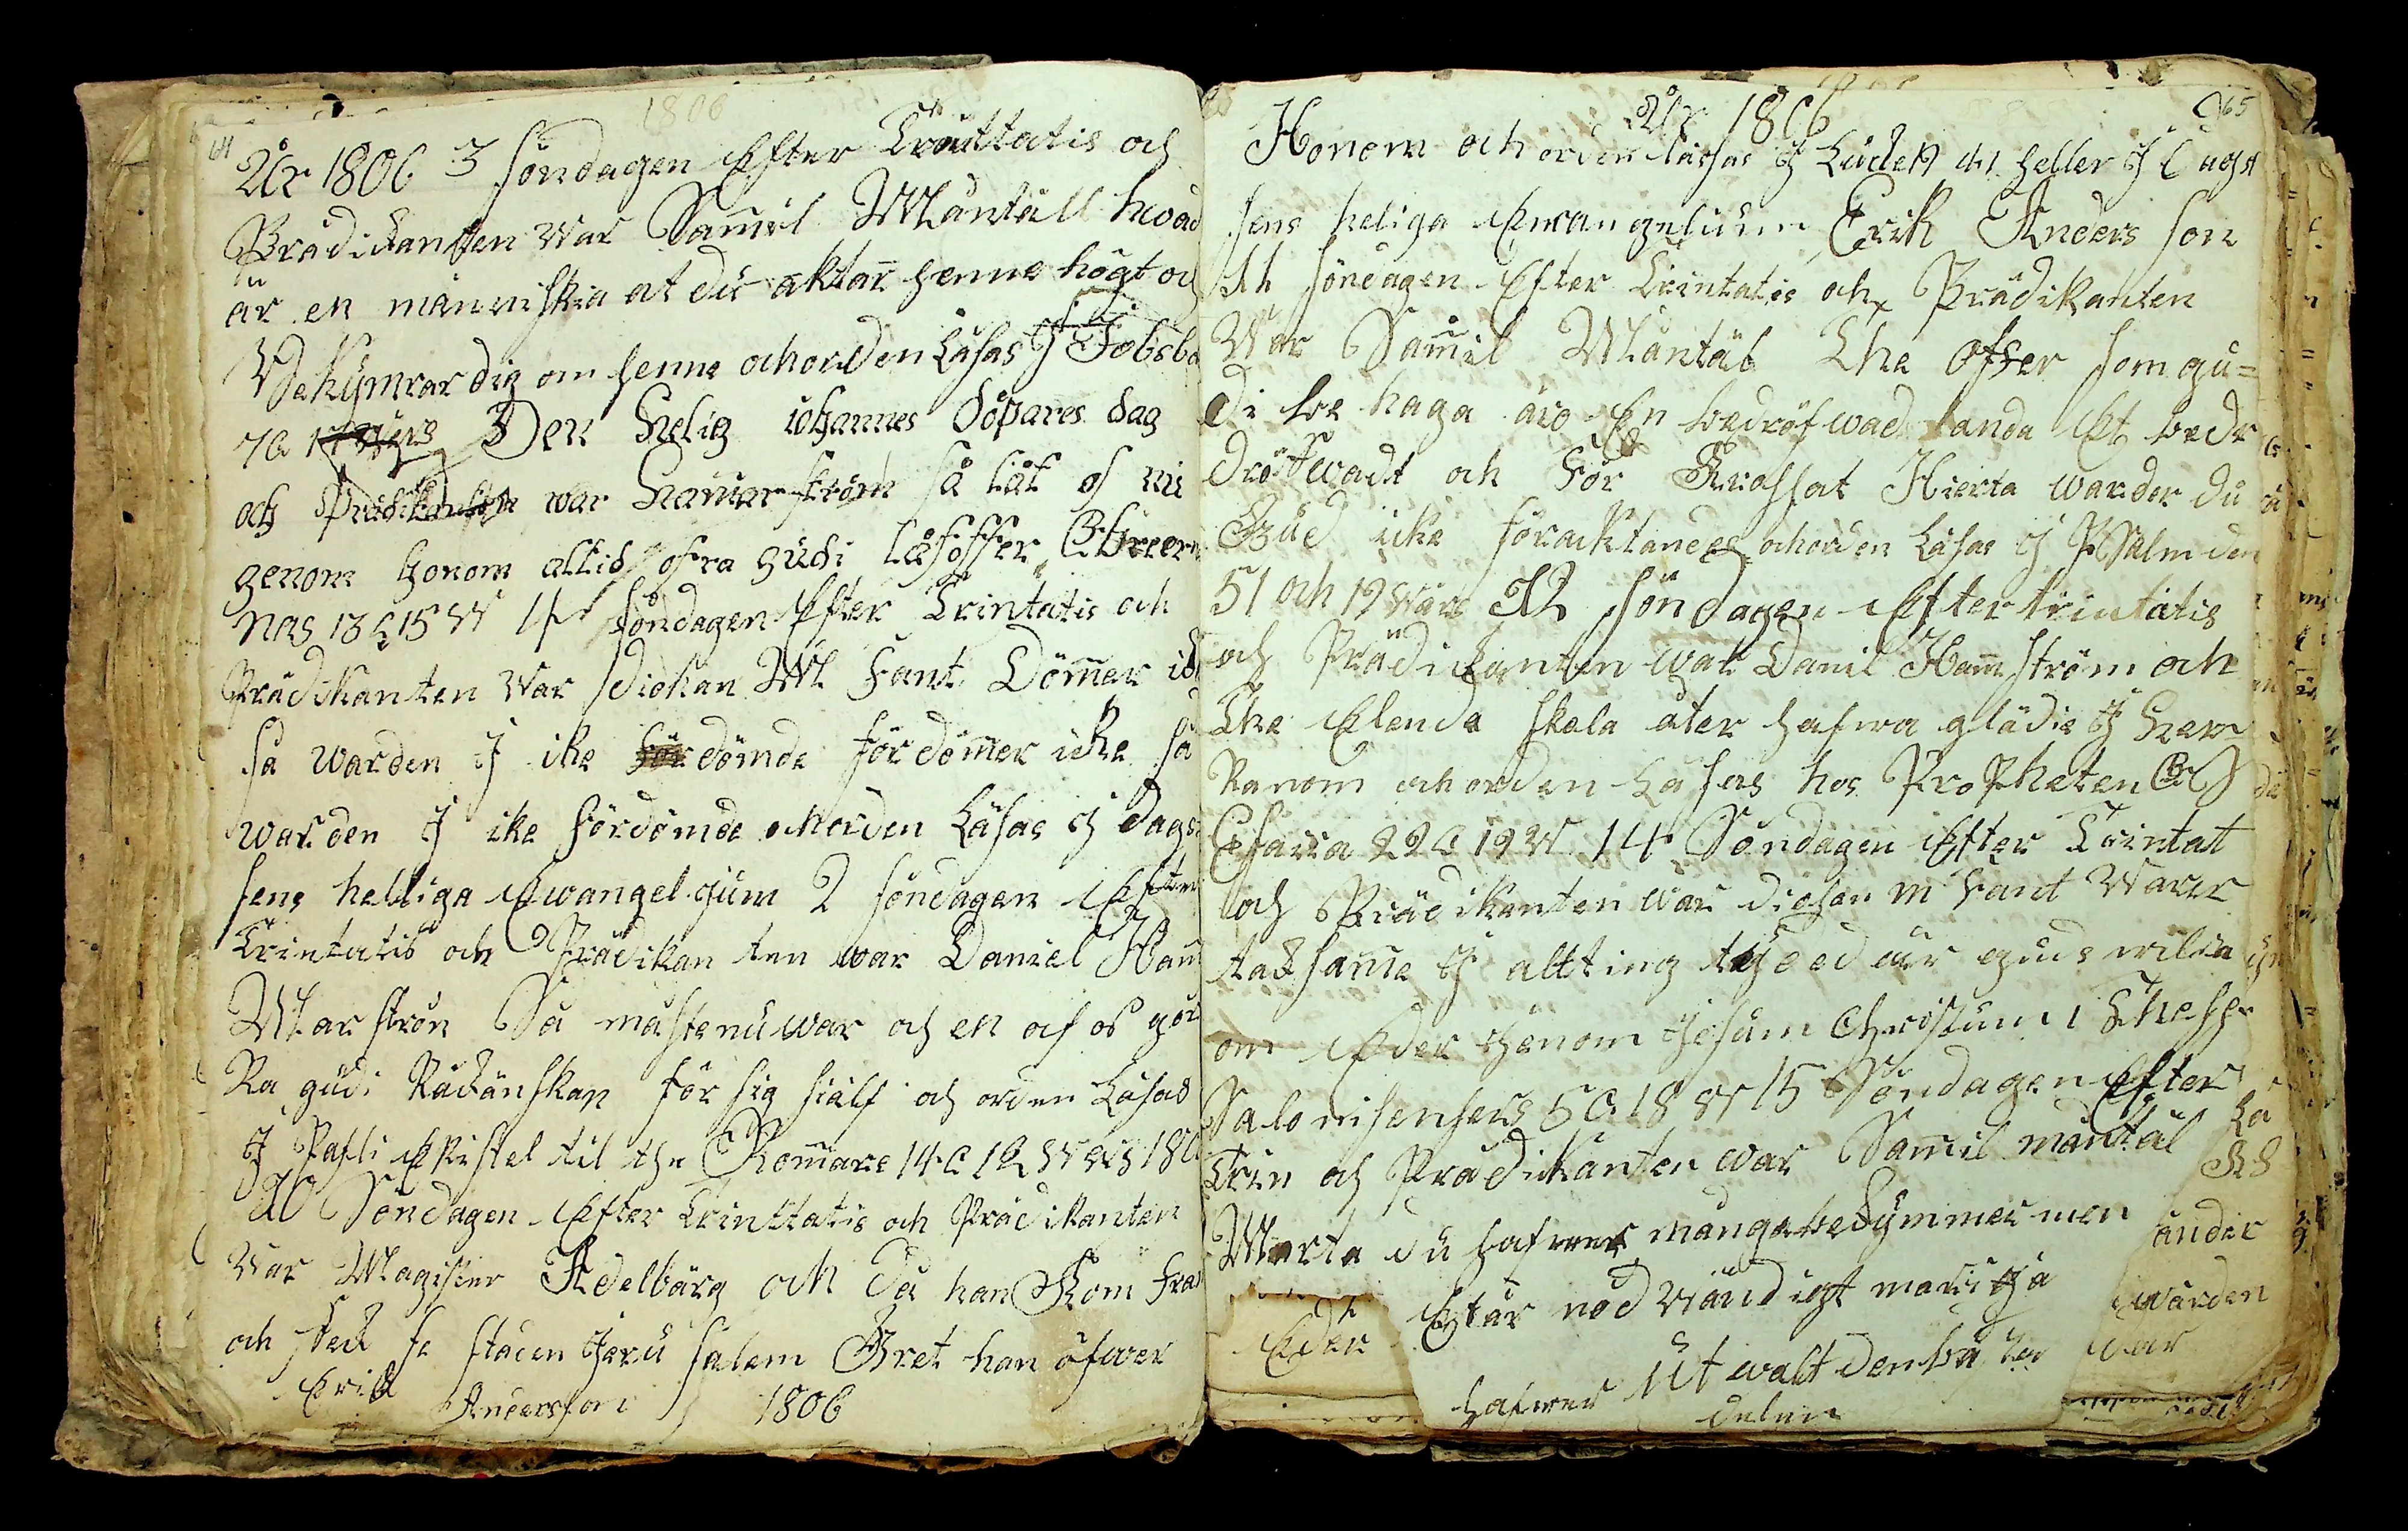 1806
64
År 1806 3 söndagen Efter Trinttatis och
Prädikanten War Samil Mäntäll hwad
är en människia at du aktar henne högt oc
Bekÿmrar dig om henne och orden Läsas I Jobsbo
7 C 17 wers Den helig iohannes döpares dag
och Prädikanten war Hammarström så låt os nu
genom honom altid ofra gudi låfoffer Ebreer
nas 13 C 15 W 4 söndagen Efter Trintatis och
Prädikanten War Diekan M Fant Dömer ick
så warden I ike dömde fördömer icke så
warden I ike fördömde och orden Läsas I dags
sens helliga Ewangelgium 2 söndagen Efter
Trintatis och Prädikan ten war Daniel Ham
Marström Så måste nu war och en af os gör
Ra gudi Räckänskap för sig siälf och orden Läsas
I Pafli Epistel til the Romare 14 C 12 Wers 180
10 Söndagen Efter Trinttatis och Prädikanten
War Magister Adelbärg och då han Kom fram
och fick se staden Jeru salem Gret han öfwer
Erik Andersson 1806
65
År 1806
Honom och orden läsas I Luce 19 41 heller I Dags
sens heliga Ewangelium Erik Anders son
11 söndagen Efter Trintatis och Prädikanten
War Samil Mäntäl The offer som gu=
di be haga äro En bedröfwad anda Et bedr
dröfwadt och för Krossat Hierta warder du
Gud icke föracktandes och orden Läsas I Psalm den
51 och 19 wärs 12 söndagen Efter trintatis
och Prädikanten war Danil Hammström och
The Elenda skola åter hafwa glädie I Her
Ranom och orden Läsas hos Propheten
Esaiia 29 C 19 W 14 Söndagen Efter Trintat
och Prädikanten war diekan M Fant Warer
taksamme I allting tÿ ded är guds wilia
om Eder Genom Jesum Christum 1 Thess
Salonisensers 5 C 18 W 15 Söndagen Efter
Trin och Prädickanten war Samil mäntäl
Marta du hafwer mångabekÿmmer men
Et är nödwändigt maria
hafwer Ut walt den bä
delen
Eder
änder
warden
war